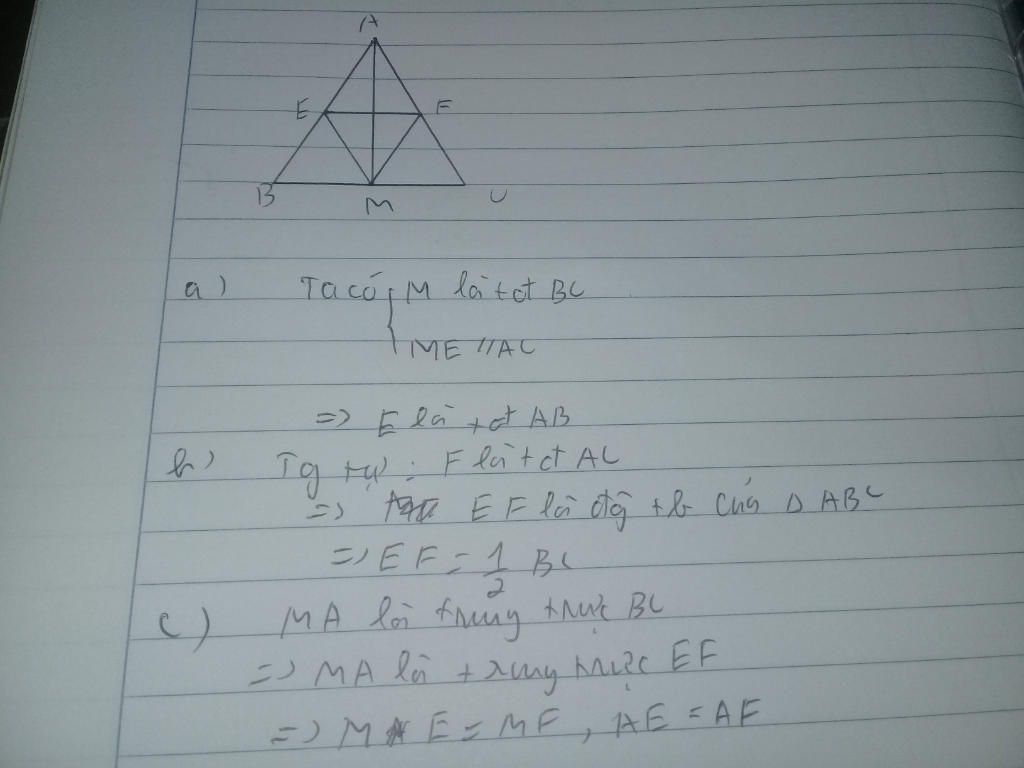 A
E F
B M C
a) Ta có { M là tđ BC
ME // AC
=> E là tđ AB
b) Tg tự : F là tđ AC
=> EF là đg tb của Δ ABC
=> EF = 1/2 BC
c) MA là trung trực BC
=> MA là trung trực EF
=> ME = MF, AE = AF